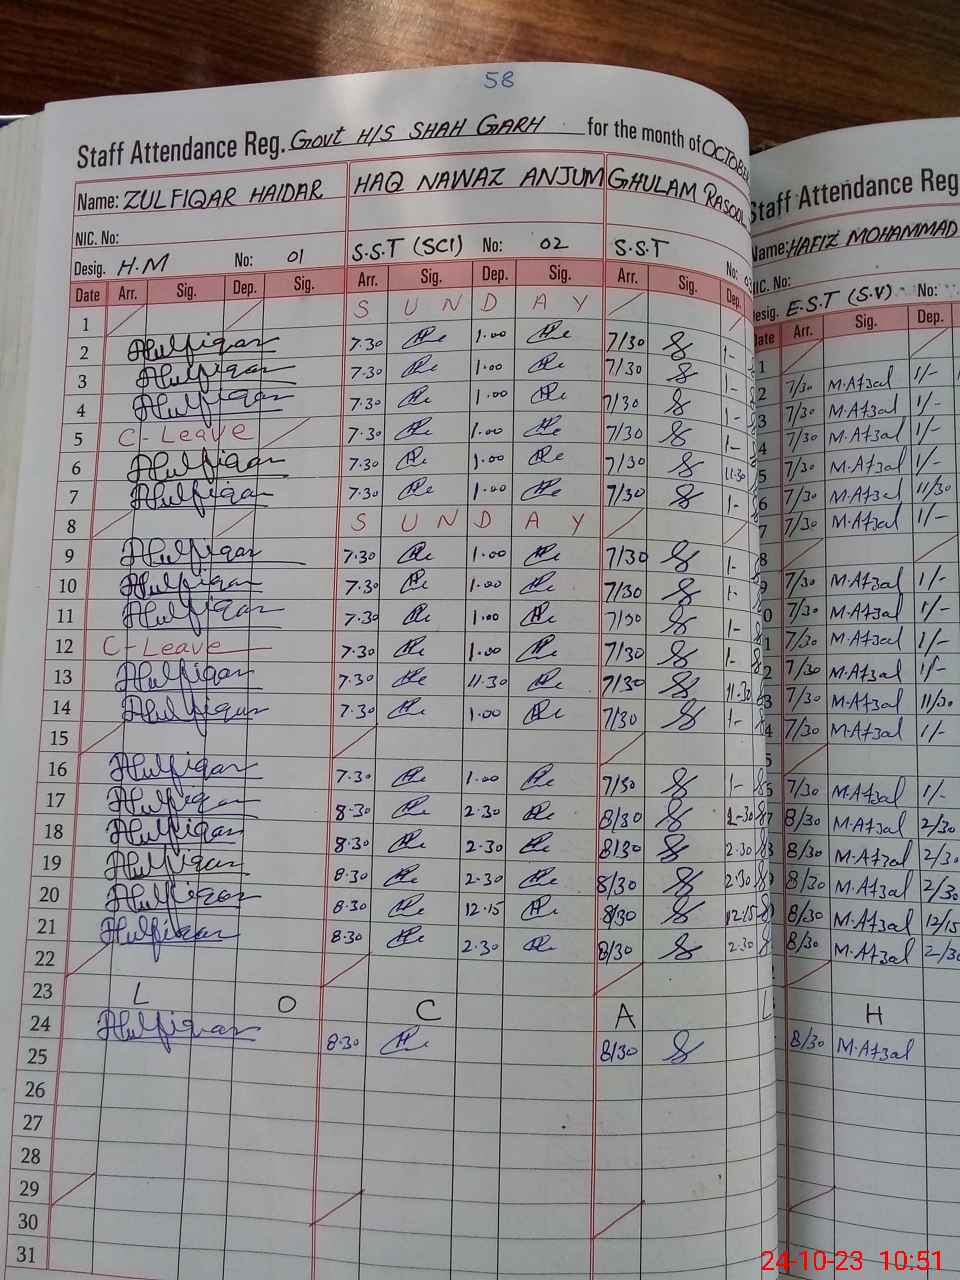 58
Staff Attendance Reg. Govt H/S SHAH GARH for the month of OCTOBER
Name: ZULFIQAR HAIDAR HAQ NAWAZ ANJUM GHULAM RASOOL
NIC. No:
Desig. H.M No: 01 S.S.T (SCI) No: 02 S.S.T No: 03
Date Arr. Sig. Dep. Sig. Arr. Sig. Dep. Sig. Arr. Sig. Dep.
1 S U N D A Y
2 Zulfiqar 7.30 1.00 7/30 1-
3 Zulfiqar 7.30 1.00 7/30 1-
4 Zulfiqar 7.30 1.00 7/30 1-
5 C-Leave 7.30 1.00 7/30 1-
6 Zulfiqar 7.30 1.00 7/30 11.30
7 Zulfiqar 7.30 1.00 7/30 1-
8 S U N D A Y
9 Zulfiqar 7.30 1.00 7/30 1-
10 Zulfiqar 7.30 1.00 7/30 1-
11 Zulfiqar 7.30 1.00 7/30 1-
12 C-Leave 7.30 1.00 7/30 1-
13 Zulfiqar 7.30 11.30 7/30 11.30
14 Zulfiqar 7.30 1.00 7/30 1-
15
16 Zulfiqar 7.30 1.00 7/30 1-
17 Zulfiqar 8.30 2.30 8/30 2-30
18 Zulfiqar 8.30 2.30 8/30 2.30
19 Zulfiqar 8.30 2.30 8/30 2.30
20 Zulfiqar 8.30 12.15 8/30 12.15
21 Zulfiqar 8.30 2.30 8/30 2.30
22
23 L O C A L H
24 Zulfiqar 8.30 8/30
25
26
27
28
29
30
31
Staff Attendance Reg
Name: HAFIZ MOHAMMAD
NIC. No:
Desig. E.S.T (S.V) No:
Date Arr. Sig. Dep.
1
2 7/30 M.Afzal 1/-
3 7/30 M.Afzal 1/-
4 7/30 M.Afzal 1/-
5 7/30 M.Afzal 1/-
6 7/30 M.Afzal 11/30
7 7/30 M.Afzal 1/-
8
9 7/30 M.Afzal 1/-
0 7/30 M.Afzal 1/-
1 7/30 M.Afzal 1/-
2 7/30 M.Afzal 1/-
3 7/30 M.Afzal 11/30
4 7/30 M.Afzal 1/-
5
6 7/30 M.Afzal 1/-
7 8/30 M.Afzal 2/30
8 8/30 M.Afzal 2/30
8/30 M.Afzal 2/30
8/30 M.Afzal 12/15
8/30 M.Afzal 2/30
8/30 M.Afzal
24-10-23 10:51